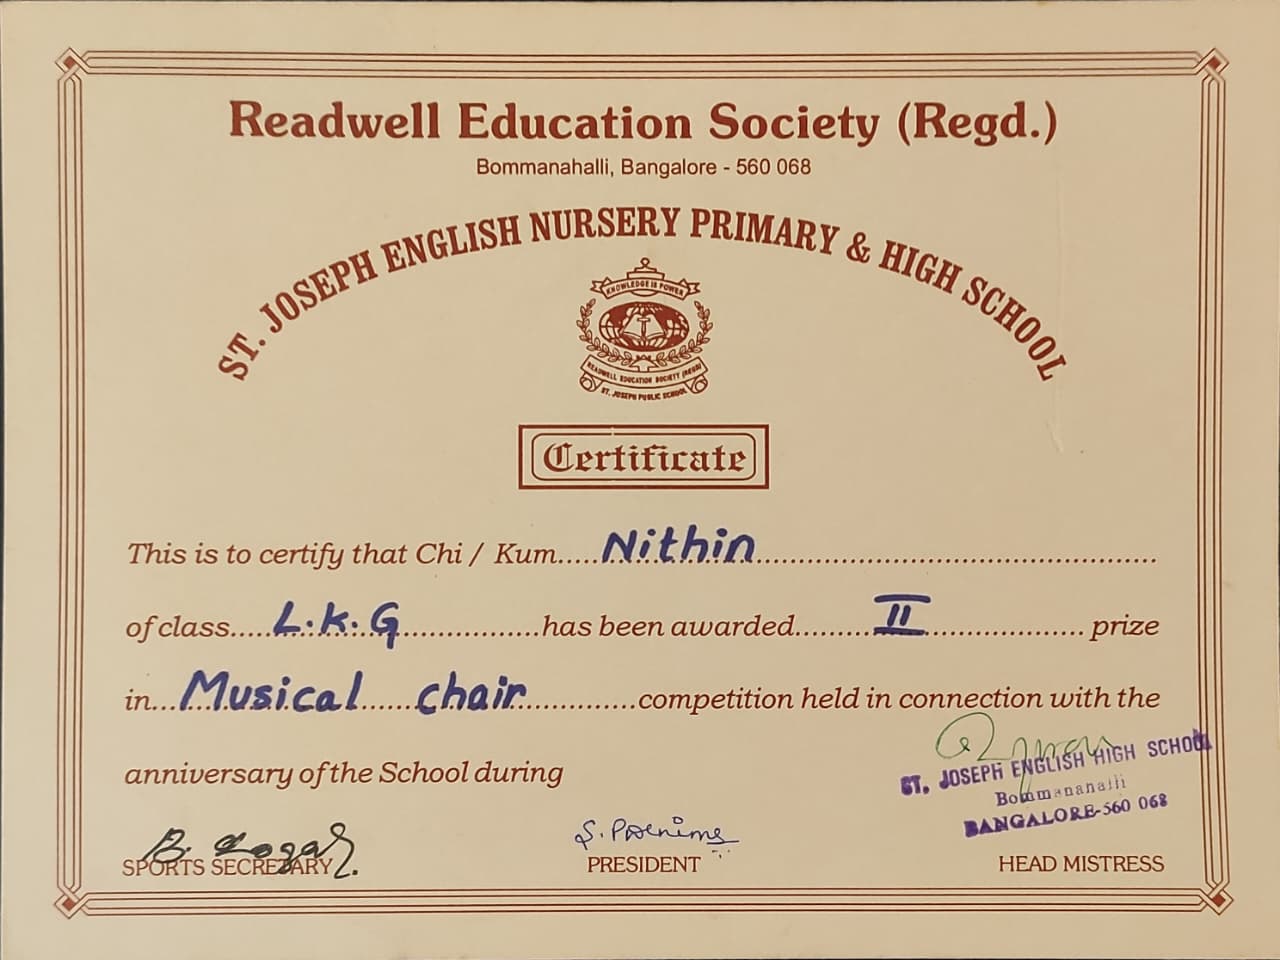 Readwell Education Society (Regd.)
Bommanahalli, Bangalore - 560 068
ST. JOSEPH ENGLISH NURSERY PRIMARY & HIGH SCHOOL
KNOWLEDGE IS POWER
READWELL EDUCATION SOCIETY (REGD)
ST. JOSEPH PUBLIC SCHOOL
Certificate
This is to certify that Chi / Kum.....Nithin
of class.....L.K.G...............has been awarded.........II.................. prize
in...Musical......chair.............competition held in connection with the
anniversary of the School during
ST. JOSEPH ENGLISH HIGH SCHOOL
Bommanahalli
BANGALORE-560 068
B.
S.
SPORTS SECRETARY PRESIDENT HEAD MISTRESS